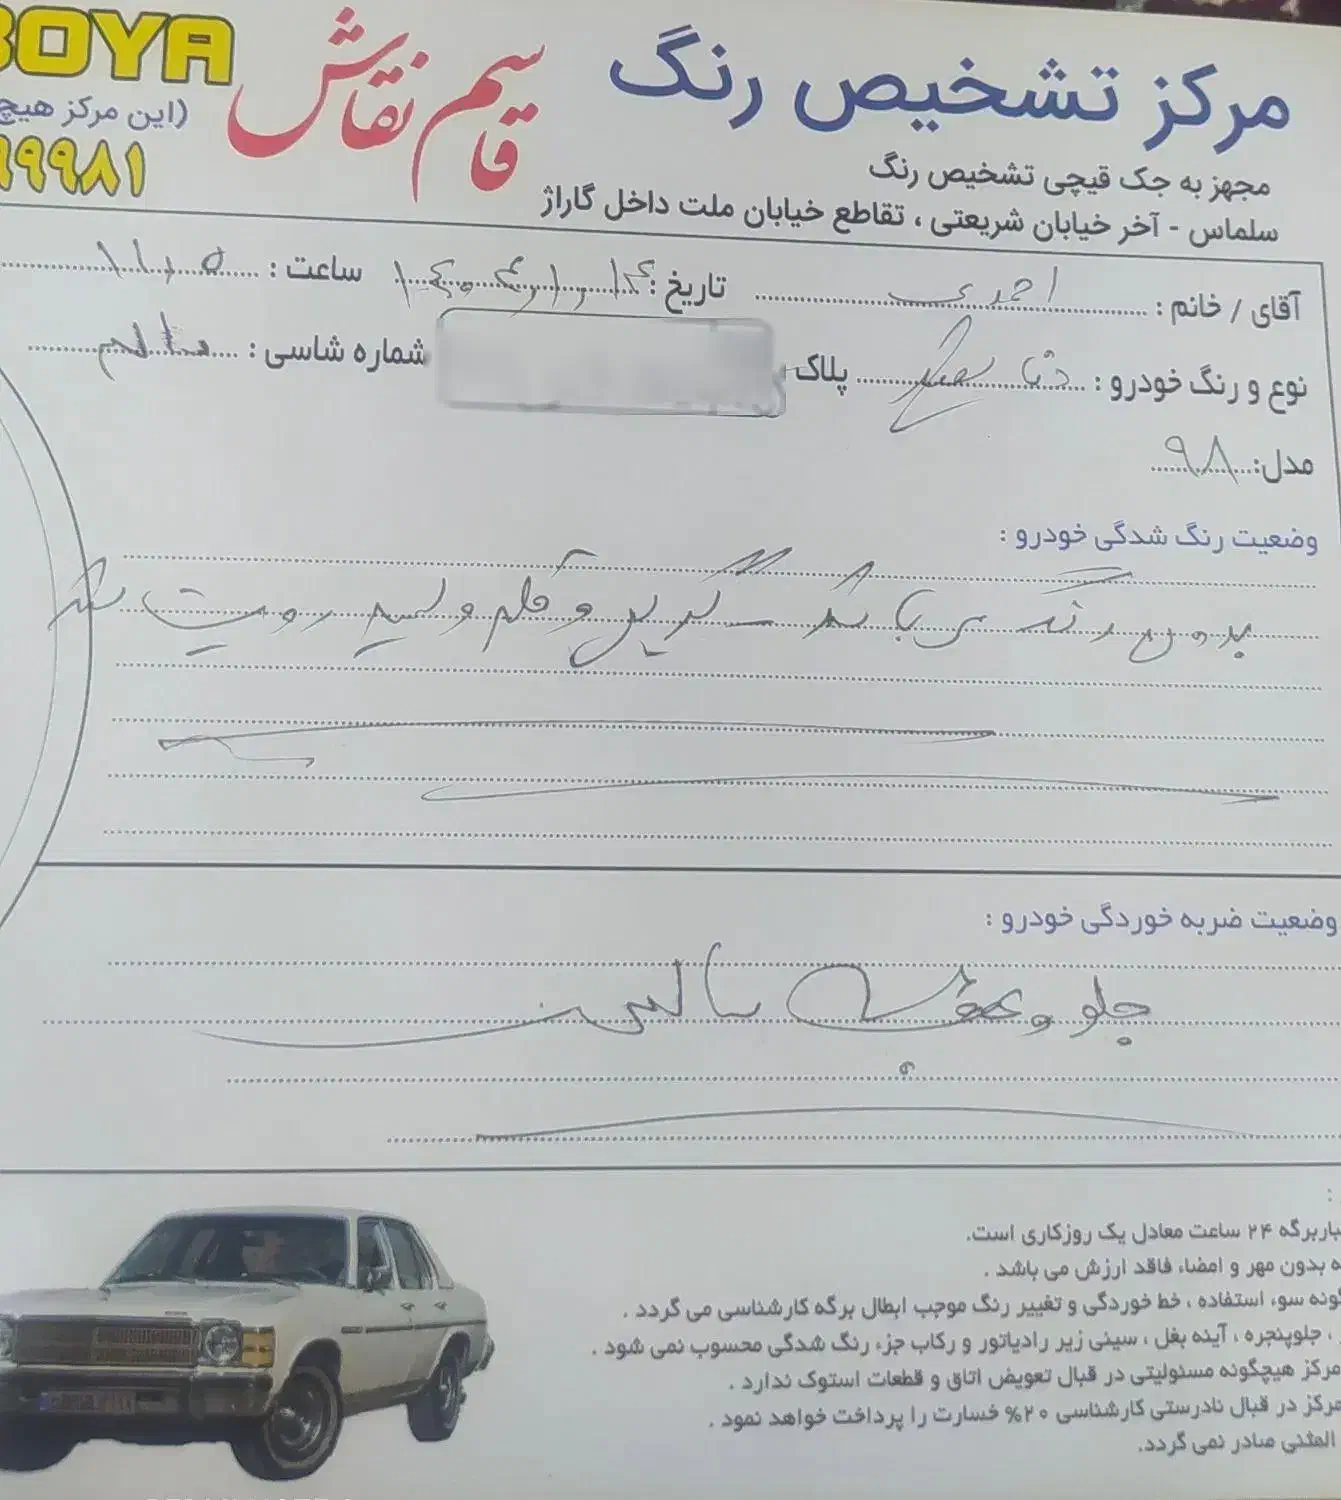 BOYA
مرکز تشخیص رنگ
قاسم نقاش
(این مرکز هیچ
۹۹۸۱
مجهز به جک قیچی تشخیص رنگ
سلماس - آخر خیابان شریعتی ، تقاطع خیابان ملت داخل گاراژ
آقای / خانم : احمدی تاریخ : ساعت : ۱۱٫۵
نوع و رنگ خودرو : دنا سفید پلاک شماره شاسی : سالم
مدل: ۹۸
وضعیت رنگ شدگی خودرو :
بدون رنگ می باشد گریل و قلم و لیسه رویت شد
وضعیت ضربه خوردگی خودرو :
جلو و عقب سالم
باربرگه ۲۴ ساعت معادل یک روزکاری است.
ه بدون مهر و امضاء فاقد ارزش می باشد .
گونه سوء استفاده ، خط خوردگی و تغییر رنگ موجب ابطال برگه کارشناسی می گردد .
، جلوپنجره ، آینه بغل ، سینی زیر رادیاتور و رکاب جزء رنگ شدگی محسوب نمی شود .
مرکز هیچگونه مسئولیتی در قبال تعویض اتاق و قطعات استوک ندارد .
مرکز در قبال نادرستی کارشناسی ۲۰% خسارت را پرداخت خواهد نمود .
المثنی صادر نمی گردد.